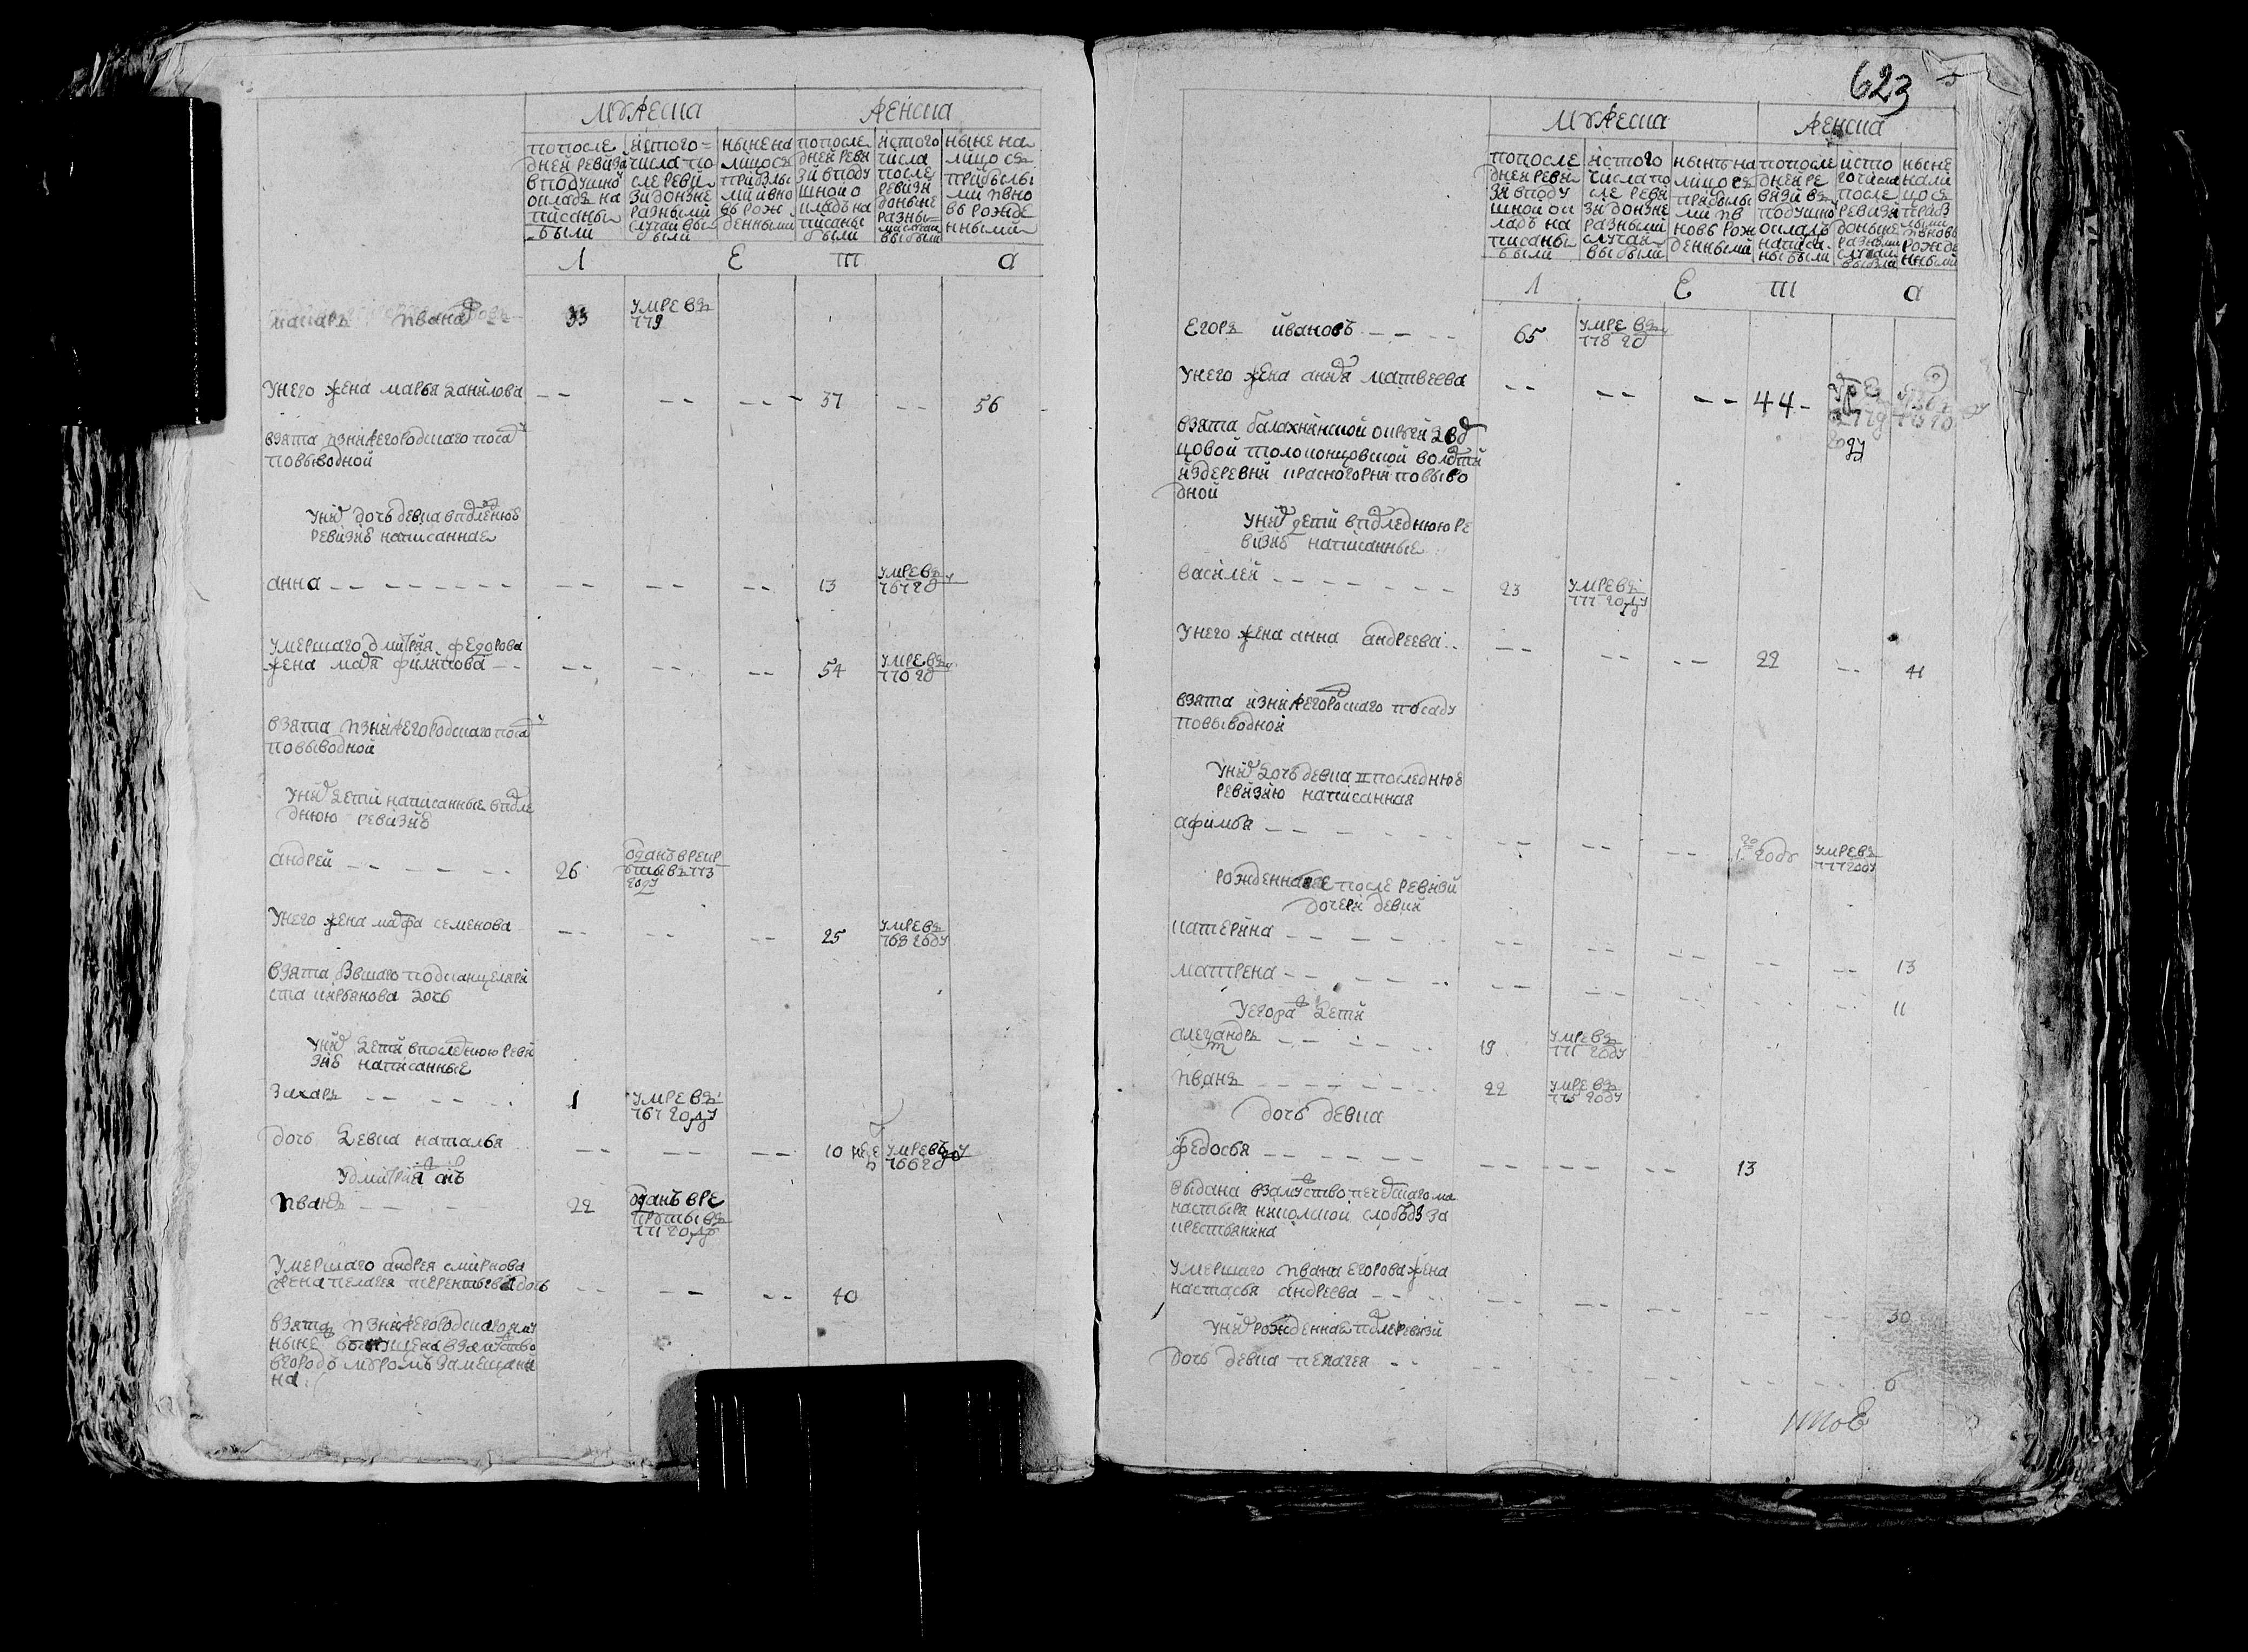 623
мужеска женска
попосле дней ревизй вподушно окладъ написаны были
истого числа после ревизй донзне разными случай выбыли
ныне на лицо съ прибылыми ивновь рожденными
попосле дней ревизй вподушной окладъ написаны были
истого числа после ревизй доныне разными выбыли
ныне на лицо съ прибылыми ивновь рожденными
л е т а
макаръ ивановъ -- 33 умре въ 779
унего жена марья данилова -- -- -- 37 -- 56
взята изнижегородскаго посаду
повыводной
унихъ дочь девка впоследнюю
ревизию написанная
анна -- -- -- -- 13 умре въ 767 году
умершаго дмитрия федорова
жена марфа филипова -- -- -- -- 54 умре въ 770 году
взята изнижегородскаго посаду
повыводной
унихъ дети написанные впосле
днюю ревизию
андрей -- -- 26 отданъ врекруты въ 773 году
унего жена марфа семенова -- -- -- 25 умре въ 768 году
взята бывшаго подканцеляри
ста курбанова дочь
унихъ дети впоследнюю реви
зию написанные
захаръ -- -- 1 умре въ 767 году
дочь девка наталья -- -- -- 10 неде умре въ 766 году
удмитрия сынъ
иванъ -- -- 22 отданъ врекруты въ 771 году
умершаго андрея смирнова
жена пелагея терентьева дочь -- -- -- 40
взята изнижегородскаго
ныне выпущена взамуство
вгородъ муромъ замещани
на
мужеска женска
попосле дней ревизй вподушной окладъ написаны были
истого числа после ревизй донзне разными случаи выбыли
ныне на лицо съ прибылыми ив новь рожденными
попосле дней ревизй въ подушно окладъ написаны были
исто го числа после ревизй доныне разными случаи выбыли
ныне нали цо съ прибылыми ивновь рожденными
л е т а
егоръ ивановъ -- -- 65 умре въ 778 году
унего жена авдотья матвеева -- -- -- 44 -
взята балахнинской округи дво
цовой толоконцовской волости
издеревни красногорки повыво
дной
унихъ дети впоследнюю ре
визию написанные
василей -- -- 23 умре въ 777 году
унего жена анна андреева -- -- -- -- 22 -- 41
взята изнижегородскаго посаду
повыводной
унихъ дочь девка впоследнюю
ревизию написанная
афимья -- -- -- -- 1 году умре въ 777 году
рожденные после ревизй
дочери девки
катерина -- -- -- -- -- -- 13
матрена -- -- -- -- -- -- 11
уегора дети
александръ -- -- 19 умре въ 771 году
иванъ -- -- 22 умре въ 775 году
дочь девка
федосья -- -- -- -- -- 13
выдана взамуство печерскаго мо
настыря никольской слободы за
крестьянина
умершаго ивана егорова жена
настасья андреева -- -- -- -- -- -- 30
унихъ рожденная после ревизй
дочь девка пелагея -- -- -- -- -- -- 6
итое